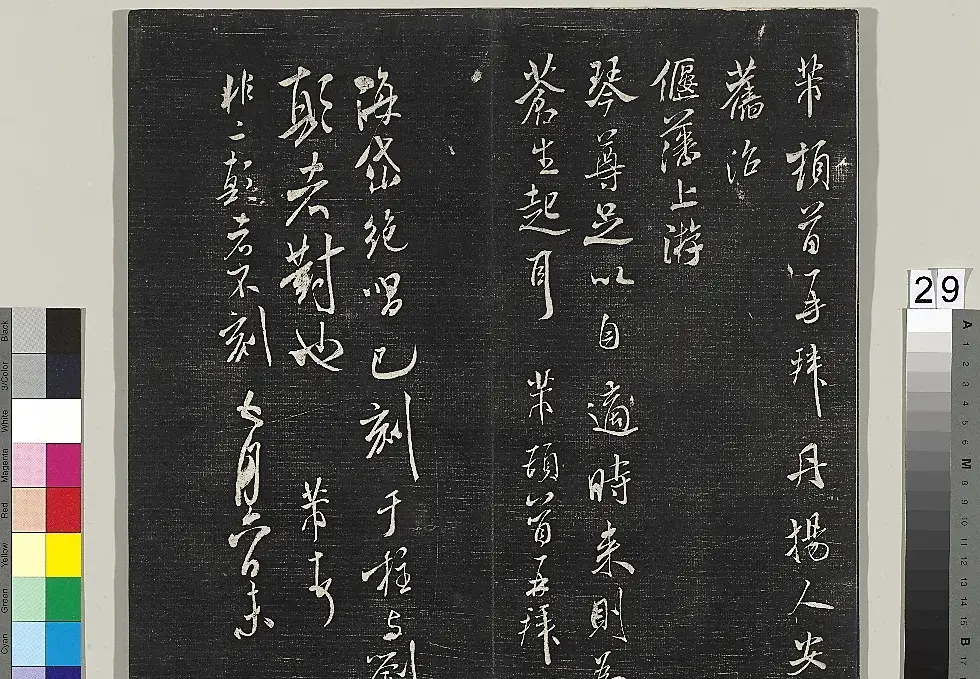 芾頓首再拜丹揚人安
舊治
偃藩上游
琴尊足以自適時来則為
蒼生起耳 芾頓首再拜
海岱絶唱已刻于桎与劉
顛老對也 芾
非二顛老不刻 七月六日末
29
Black
3/Color
White
Magenta
Red
Yellow
Green
Cyan
A 1 2 3 4 5 6 M 8 9 10 11 12 13 14 15 B 17